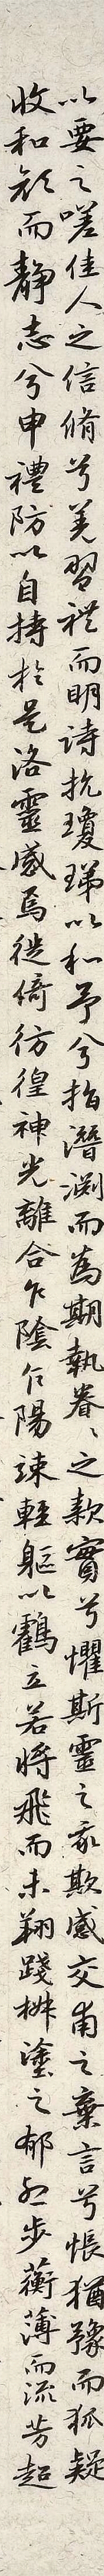 以要之嗟佳人之信脩兮羌習禮而明詩抗瓊珶以和予兮指潛淵而為期執眷〻之款實兮懼斯靈之我欺感交甫之棄言兮悵猶豫而狐疑
收和顏而靜志兮申禮防以自持於是洛靈感焉徙倚彷徨神光離合乍陰乍陽竦輕軀以鶴立若將飛而未翔踐椒塗之郁烈步蘅薄而流芳超